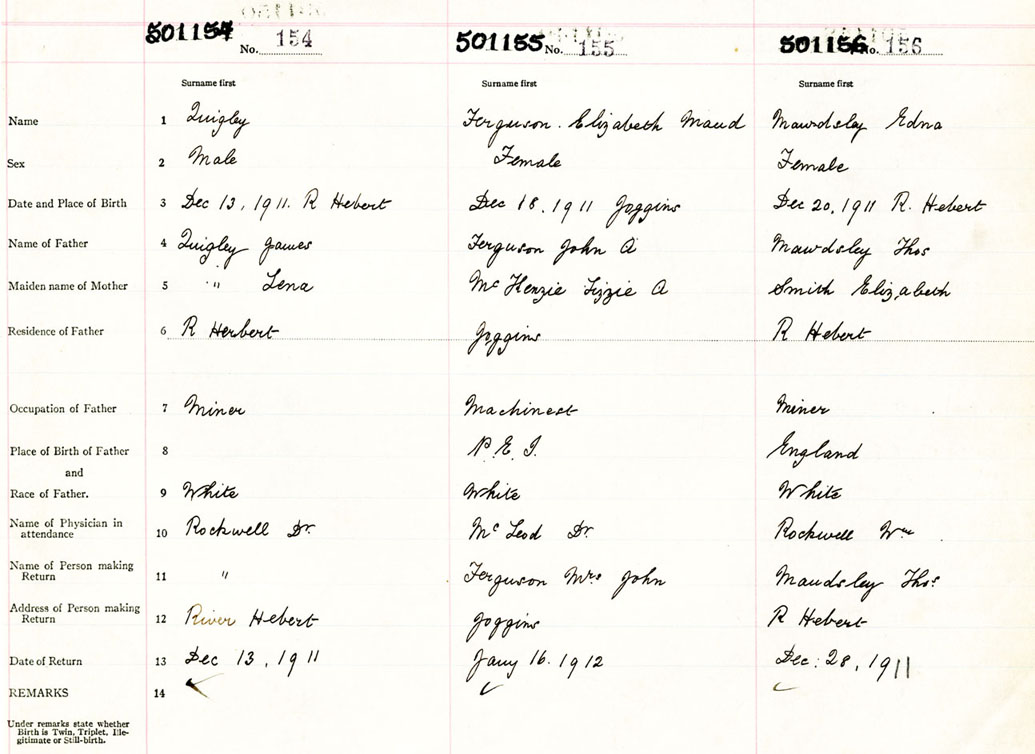 501154 No. 154 501155 No. 155 501156 No. 156
Surname first Surname first Surname first
Name 1 Quigley Ferguson. Elizabeth Maud Mawdsley Edna
Sex 2 Male Female Female
Date and Place of Birth 3 Dec 13, 1911. R Hebert Dec 18, 1911 Joggins Dec 20, 1911 R. Hebert
Name of Father 4 Quigley James Ferguson John A Mawdsley Thos
Maiden name of Mother 5 " Lena McKenzie Lizzie A Smith Elizabeth
Residence of Father 6 R Herbert Joggins R Hebert
Occupation of Father 7 Miner Machinest Miner
Place of Birth of Father 8 P.E.I. England
and
Race of Father. 9 White White White
Name of Physician in
attendance 10 Rockwell Dr. McLeod Dr. Rockwell Wm
Name of Person making
Return 11 " Ferguson Mrs John Maudsley Thos.
Address of Person making
Return 12 River Hebert Joggins R Hebert
Date of Return 13 Dec 13, 1911 Jany 16. 1912 Dec. 28, 1911
REMARKS 14
Under remarks state whether
Birth is Twin, Triplet, Ille-
gitimate or Still-birth.